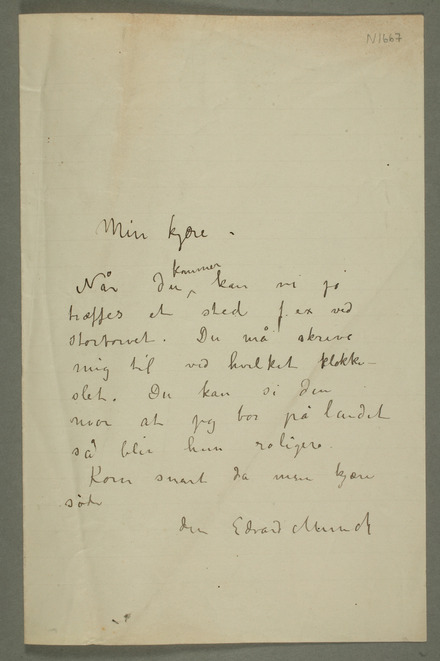 N1667
Min kjære.
Når du kommer kan vi jo
træffes et sted f.ex ved
stortorvet. Du må skrive
mig til ved hvilket klokke-
slet. Du kan si din
mor at jeg bor på landet
så blir hun roligere.
Kom snart da min kjære
søde
din Edvard Munch